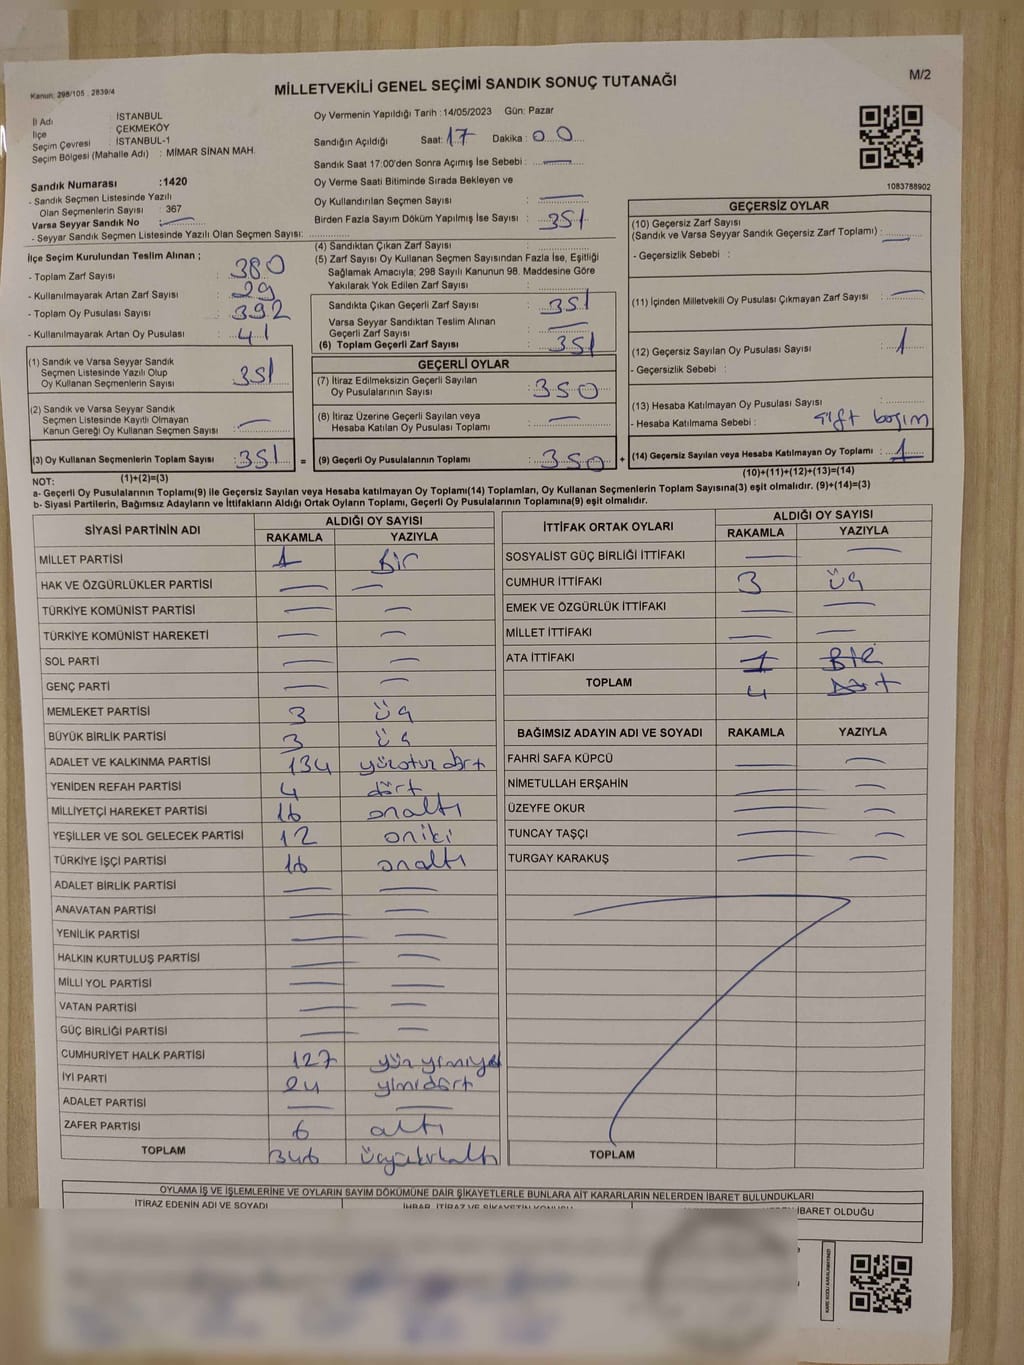 M/2
Kanun: 298/105 . 2839/4
MİLLETVEKİLİ GENEL SEÇİMİ SANDIK SONUÇ TUTANAĞI
İl Adı : İSTANBUL
İlçe : ÇEKMEKÖY
Seçim Çevresi : İSTANBUL-1
Seçim Bölgesi (Mahalle Adı) : MİMAR SİNAN MAH.
Sandık Numarası :1420
- Sandık Seçmen Listesinde Yazılı
Olan Seçmenlerin Sayısı : 367
Varsa Seyyar Sandık No : —
- Seyyar Sandık Seçmen Listesinde Yazılı Olan Seçmen Sayısı:
Oy Vermenin Yapıldığı Tarih :14/05/2023 Gün: Pazar
Sandığın Açıldığı Saat: 17 Dakika : 00
Sandık Saat 17:00'den Sonra Açımış İse Sebebi : —
Oy Verme Saati Bitiminde Sırada Bekleyen ve
Oy Kullandırılan Seçmen Sayısı : —
Birden Fazla Sayım Döküm Yapılmış İse Sayısı : 351
1083788902
İlçe Seçim Kurulundan Teslim Alınan ;
- Toplam Zarf Sayısı : 380
- Kullanılmayarak Artan Zarf Sayısı : 29
- Toplam Oy Pusulası Sayısı : 392
- Kullanılmayarak Artan Oy Pusulası : 41
(1) Sandık ve Varsa Seyyar Sandık
Seçmen Listesinde Yazılı Olup
Oy Kullanan Seçmenlerin Sayısı : 351
(2) Sandık ve Varsa Seyyar Sandık
Seçmen Listesinde Kayıtlı Olmayan
Kanun Gereği Oy Kullanan Seçmen Sayısı : —
(3) Oy Kullanan Seçmenlerin Toplam Sayısı : 351 =
(1)+(2)=(3)
(4) Sandıktan Çıkan Zarf Sayısı :
(5) Zarf Sayısı Oy Kullanan Seçmen Sayısından Fazla İse, Eşitliği
Sağlamak Amacıyla; 298 Sayılı Kanunun 98. Maddesine Göre
Yakılarak Yok Edilen Zarf Sayısı :
Sandıkta Çıkan Geçerli Zarf Sayısı : 351
Varsa Seyyar Sandıktan Teslim Alınan
Geçerli Zarf Sayısı : —
(6) Toplam Geçerli Zarf Sayısı : 351
GEÇERLİ OYLAR
(7) İtiraz Edilmeksizin Geçerli Sayılan
Oy Pusulalarının Sayısı : 350
(8) İtiraz Üzerine Geçerli Sayılan veya
Hesaba Katılan Oy Pusulası Toplamı : —
(9) Geçerli Oy Pusulalarının Toplamı : 350 +
GEÇERSİZ OYLAR
(10) Geçersiz Zarf Sayısı
(Sandık ve Varsa Seyyar Sandık Geçersiz Zarf Toplamı) : —
- Geçersizlik Sebebi :
(11) İçinden Milletvekili Oy Pusulası Çıkmayan Zarf Sayısı : —
(12) Geçersiz Sayılan Oy Pusulası Sayısı : 1
- Geçersizlik Sebebi :
(13) Hesaba Katılmayan Oy Pusulası Sayısı :
- Hesaba Katılmama Sebebi : çift basım
(14) Geçersiz Sayılan veya Hesaba Katılmayan Oy Toplamı : 1
(10)+(11)+(12)+(13)=(14)
NOT:
a- Geçerli Oy Pusulalarının Toplamı(9) ile Geçersiz Sayılan veya Hesaba katılmayan Oy Toplamı(14) Toplamları, Oy Kullanan Seçmenlerin Toplam Sayısına(3) eşit olmalıdır. (9)+(14)=(3)
b- Siyasi Partilerin, Bağımsız Adayların ve İttifakların Aldığı Ortak Oyların Toplamı, Geçerli Oy Pusulalarının Toplamına(9) eşit olmalıdır.
SİYASİ PARTİNİN ADI ALDIĞI OY SAYISI
RAKAMLA YAZIYLA
MİLLET PARTİSİ 1 Bir
HAK VE ÖZGÜRLÜKLER PARTİSİ — —
TÜRKİYE KOMÜNİST PARTİSİ — —
TÜRKİYE KOMÜNİST HAREKETİ — —
SOL PARTİ — —
GENÇ PARTİ — —
MEMLEKET PARTİSİ 3 üç
BÜYÜK BİRLİK PARTİSİ 3 üç
ADALET VE KALKINMA PARTİSİ 134 yüzotuz dört
YENİDEN REFAH PARTİSİ 4 dört
MİLLİYETÇİ HAREKET PARTİSİ 16 onaltı
YEŞİLLER VE SOL GELECEK PARTİSİ 12 oniki
TÜRKİYE İŞÇİ PARTİSİ 16 onaltı
ADALET BİRLİK PARTİSİ — —
ANAVATAN PARTİSİ — —
YENİLİK PARTİSİ — —
HALKIN KURTULUŞ PARTİSİ — —
MİLLİ YOL PARTİSİ — —
VATAN PARTİSİ — —
GÜÇ BİRLİĞİ PARTİSİ — —
CUMHURİYET HALK PARTİSİ 127
İYİ PARTİ 24 yimidört
ADALET PARTİSİ — —
ZAFER PARTİSİ 6 altı
TOPLAM 346
İTTİFAK ORTAK OYLARI ALDIĞI OY SAYISI
RAKAMLA YAZIYLA
SOSYALİST GÜÇ BİRLİĞİ İTTİFAKI — —
CUMHUR İTTİFAKI 3 üç
EMEK VE ÖZGÜRLÜK İTTİFAKI — —
MİLLET İTTİFAKI — —
ATA İTTİFAKI 1 BİR
TOPLAM 4 Dört
BAĞIMSIZ ADAYIN ADI VE SOYADI RAKAMLA YAZIYLA
FAHRİ SAFA KÜPCÜ — —
NİMETULLAH ERŞAHİN — —
ÜZEYFE OKUR — —
TUNCAY TAŞÇI — —
TURGAY KARAKUŞ — —
TOPLAM
OYLAMA İŞ VE İŞLEMLERİNE VE OYLARIN SAYIM DÖKÜMÜNE DAİR ŞİKAYETLERLE BUNLARA AİT KARARLARIN NELERDEN İBARET BULUNDUKLARI
İTİRAZ EDENİN ADI VE SOYADI İHBAR, İTİRAZ VE ŞİKAYETİN KONUSU İBARET OLDUĞU